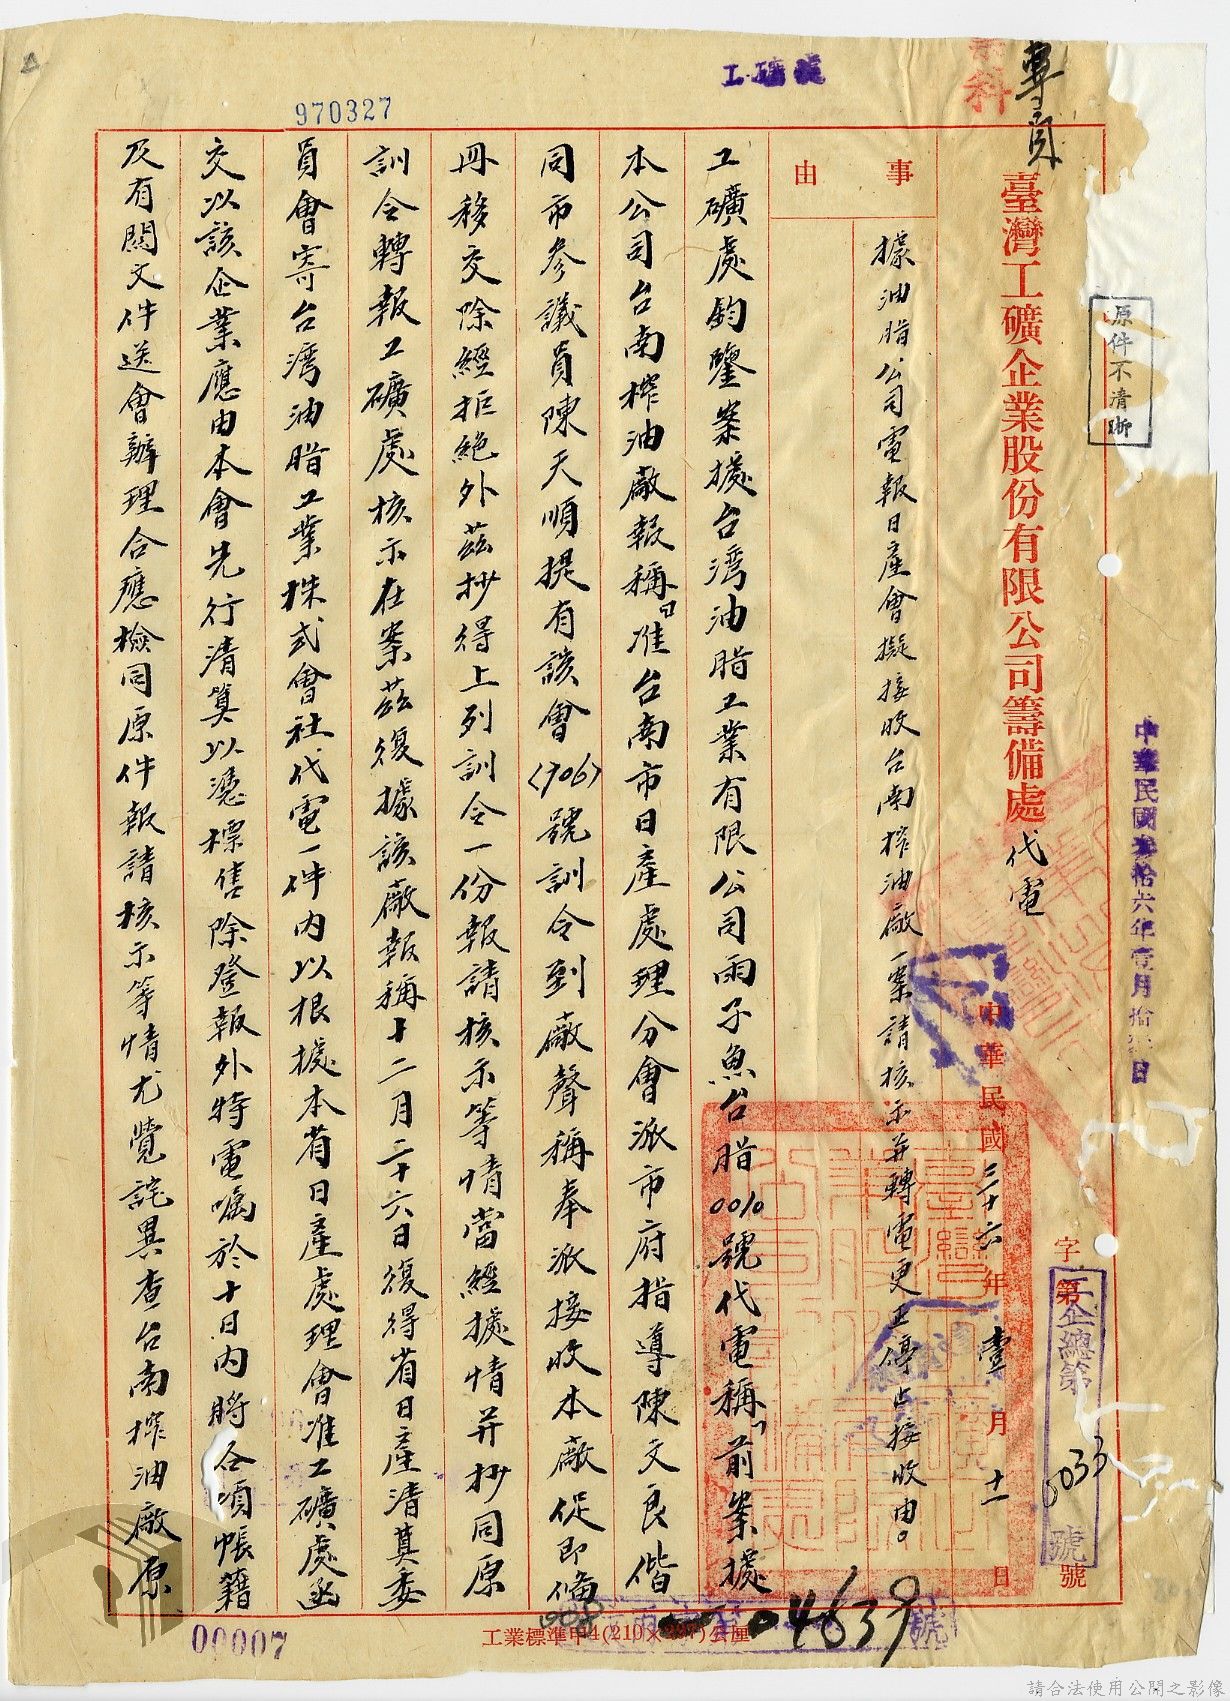 970327
專員
科
原件不清晰
臺灣工礦企業股份有限公司籌備處代電
中華民國參拾六年壹月拾
日
中華民國三十六年壹月十一日
字第
工企總第0033號
號
事由
據油脂公司電報日產會擬接收台南榨油廠一案請核示并轉電更正停止接收由。
工礦處鈞鑒案據台灣油脂工業有限公司雨子魚台脂0010號代電稱「前案據
本公司台南榨油廠報稱「准台南市日產處理分會派市府指導陳文良偕
同市參議員陳天順提有該會(906)號訓令到廠聲稱奉派接收本廠促即備
冊移交除經拒絕外茲抄得上列訓令一份報請核示等情當經據情并抄同原
訓令轉報工礦處核示在案茲復據該廠報稱十二月二十六日復得省日產清算委
員會寄台灣油脂工業株式會社代電一件內以根據本省日產處理會准工礦處函
交以該企業應由本會先行清算以憑標售除登報外特電囑於十日內將各項帳籍
及有關文件送會辦理合應檢同原件報請核示等情尤覺詫異查台南榨油廠原
04639
號
工業標準甲4(210×297)公厘
00007
請合法使用公開之影像